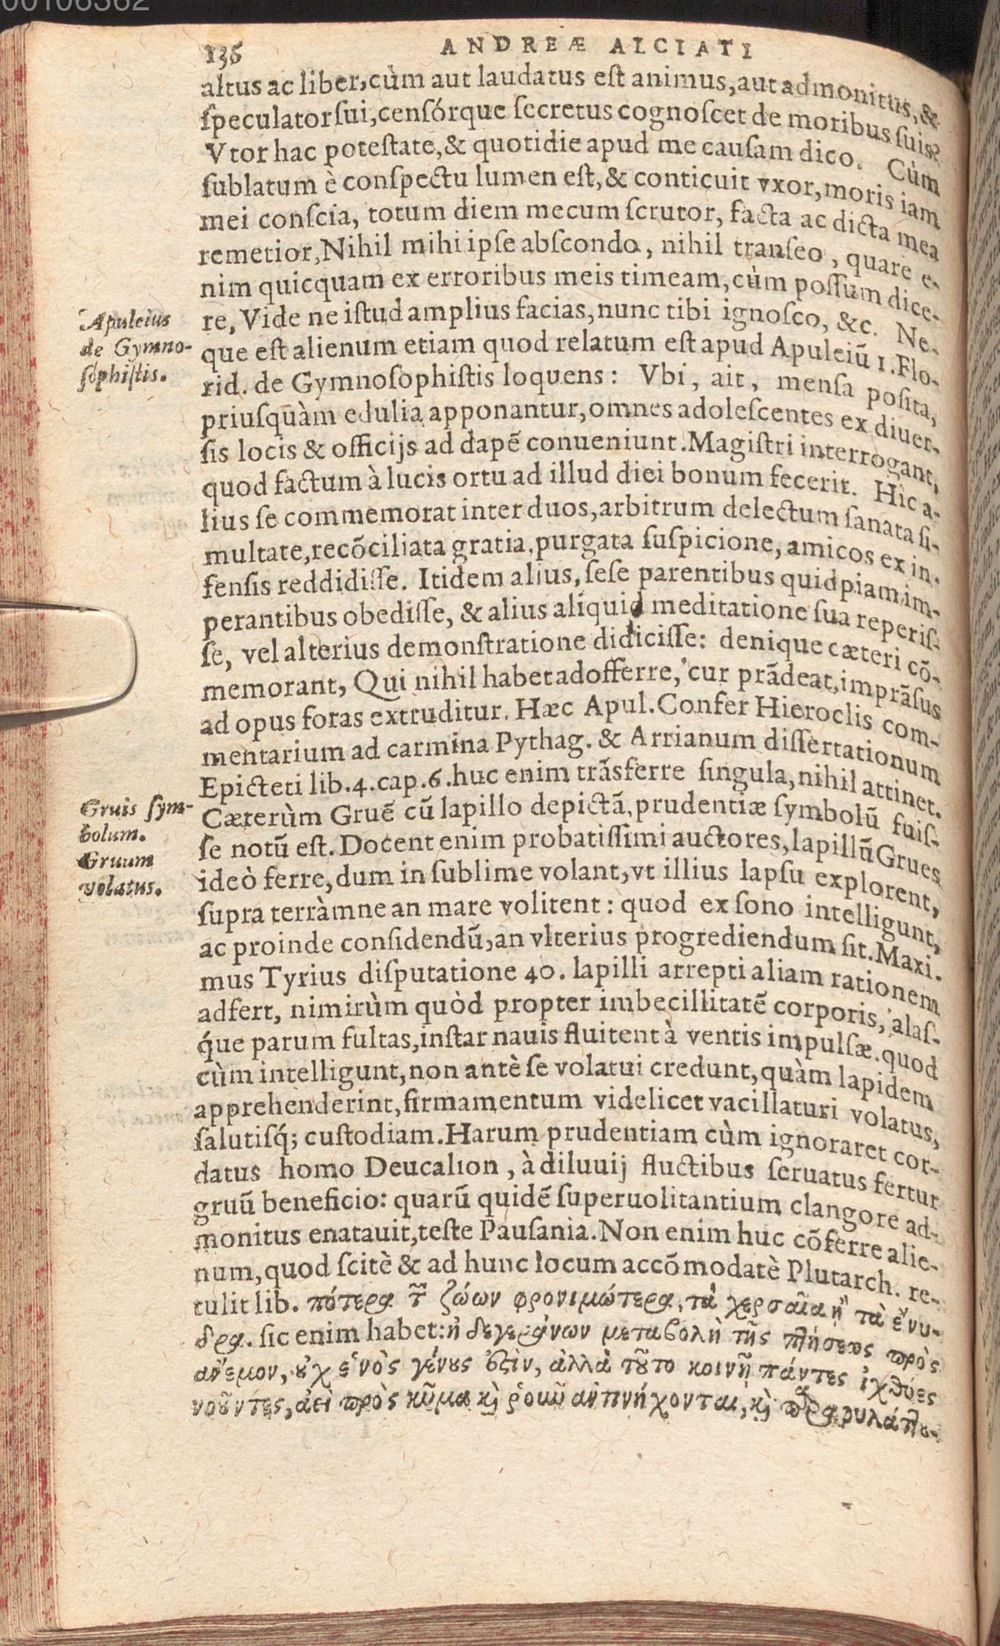 00106362
136 ANDREÆ ALCIATI
altus ac liber, cùm aut laudatus est animus, aut admonitus, &
speculator sui, censórque secretus cognoscet de moribus suis?
Vtor hac potestate, & quotidie apud me causam dico. Cùm
sublatum è conspectu lumen est, & conticuit vxor, moris iam
mei conscia, totum diem mecum scrutor, facta ac dicta mea
remetior, Nihil mihi ipse abscondo, nihil transeo, quare e-
nim quicquam ex erroribus meis timeam, cùm possum dice-
re, Vide ne istud amplius facias, nunc tibi ignosco, &c. Ne-
que est alienum etiam quod relatum est apud Apuleiũ 1. Flo-
rid. de Gymnosophistis loquens: Vbi, ait, mensa posita,
priusquàm edulia apponantur, omnes adolescentes ex diuer-
sis locis & officijs ad dapẽ conueniunt. Magistri interrogant,
quod factum à lucis ortu ad illud diei bonum fecerit. Hic a-
lius se commemorat inter duos, arbitrum delectum sanata si-
multate, recõciliata gratia, purgata suspicione, amicos ex in-
fensis reddidisse. Itidem alius, sese parentibus quidpiam im-
perantibus obedisse, & alius aliquid meditatione sua reperis-
se, vel alterius demonstratione didicisse: denique cæteri cõ-
memorant, Qui nihil habet adofferre, cur prãdeat, imprãsus
ad opus foras extruditur. Hæc Apul. Confer Hieroclis com-
mentarium ad carmina Pythag. & Arrianum dissertationum
Epicteti lib. 4. cap. 6. huc enim trãsferre singula, nihil attinet.
Cæterùm Gruẽ cũ lapillo depictã, prudentiæ symbolũ fuis-
se notũ est. Docent enim probatissimi auctores, lapillũ Grues
ideò ferre, dum in sublime volant, vt illius lapsu explorent,
supra terràmne an mare volitent: quod ex sono intelligunt,
ac proinde considendũ, an vlterius progrediendum sit. Maxi-
mus Tyrius disputatione 40. lapilli arrepti aliam rationem
adfert, nimirùm quòd propter imbecillitatẽ corporis, alas-
q́ue parum fultas, instar nauis fluitent à ventis impulsæ. quod
cùm intelligunt, non antè se volatui credunt, quàm lapidem
apprehenderint, firmamentum videlicet vacillaturi volatus,
salutisq́; custodiam. Harum prudentiam cùm ignoraret cor-
datus homo Deucalion, à diluuij fluctibus seruatus fertur
gruũ beneficio: quarũ quidẽ superuolitantium clangore ad-
monitus enatauit, teste Pausania. Non enim huc cõferre alie-
num, quod scitè & ad hunc locum accõmodatè Plutarch. re-
tulit lib. πότερα τῶν ζώων φρονιμώτερα, τὰ χερσαῖα ἢ τὰ ἔνυ-
δρα. sic enim habet: ἡ δὲ γεράνων μεταβολὴ τῆς πτήσεως πρὸς
ἄνεμον, οὐχ ἑνὸς γένους ἐστὶν, ἀλλὰ τοῦτο κοινῇ πάντες ἰχθύες
νοοῦντες, ἀεὶ πρὸς κῦμα καὶ ῥοῦν ἀντινήχονται, καὶ παραφυλάττου-
Apuleius
de Gymno-
sophistis.
Gruis sym-
bolum.
Gruum
volatus.